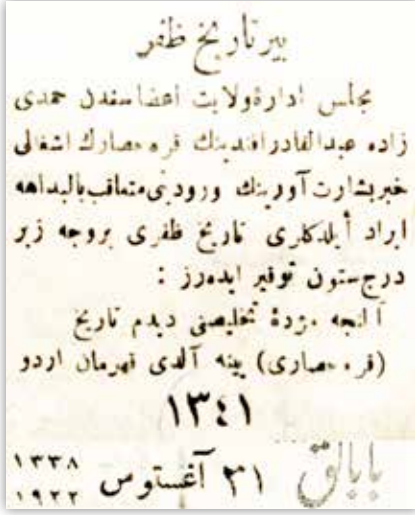 بير تاريخ ظفر
مجلس ادارۀ ولايت اعضاسندن حمدى
زاده عبدالقادر افندينك قره حصارك اشغالى
خبر بشارت آورينك ورودينى متعاقب بالبداهه
ايراد أيلدكلرى تاريخ ظفرى بروجه زير
درج ستون توقير ايده‌رز :
آلنجه مژدۀ تخليصنى ديدم تاريخ
(قره حصارى) ينه آلدى قهرمان اردو
١٣٤١
بابالق ٣١ آغستوس ١٣٣٨
١٩٢٢